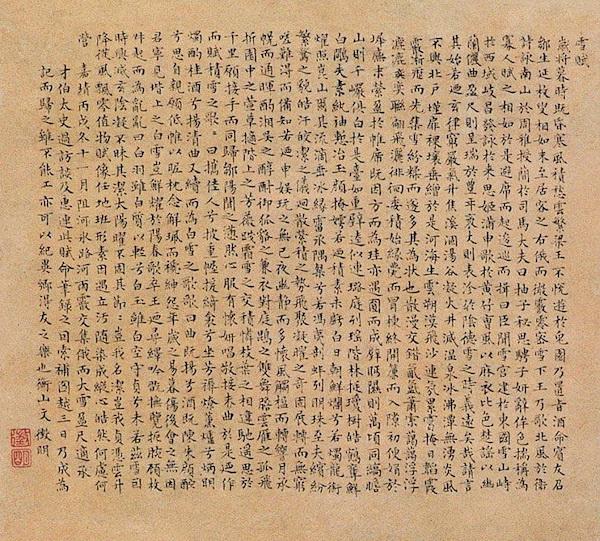 雪賦
歲將暮時既昏寒風積愁雲繁梁王不悅遊於兔園乃置旨酒命賓友召
鄒生延枚叟相如末至居客之右俄而微霰零密雪下王乃歌北風於衛
詩詠南山於周雅授簡於司馬大夫曰抽子秘思騁子妍辭侔色揣稱為
寡人賦之相如於是避席而起逡巡而揖曰臣聞雪宮建於東國雪山峙
於西域岐昌發詠於來思姬滿申歌於黃竹曹風以麻衣比色楚謠以幽
蘭儷曲盈尺則呈瑞於豐年袤丈則表沴於陰德雪之時義遠矣哉請言
其始若迺玄律窮嚴氣升焦溪涸湯谷凝火井滅溫泉冰沸潭無湧炎風
不興北戶墐扉裸壤垂繒於是河海生雲朔漠飛沙連氛累靄掩日韜霞
霰淅瀝而先集雪紛糅而遂多其為狀也散漫交錯氛氳蕭索藹藹浮浮
瀌瀌奕奕聯翩飛灑徘徊委積始緣甍而冒棟終開簾而入隙初便娟於
墀廡末縈盈於帷席既因方而為珪亦遇圓而成璧眄隰則萬頃同縞瞻
山則千巖俱白於是臺如重璧逵似連璐庭列瑤階林挺瓊樹皓鶴奪鮮
白鷴失素紈袖慙冶玉顏掩嫮若迺積素未虧白日朝鮮爛兮若燭龍銜
燿照崑山爾其流滴垂冰緣霤承隅粲兮若馮夷剖蚌列明珠至夫繽紛
繁騖之貌皓汗皦潔之儀迴散縈積之勢飛聚凝曜之奇固展轉而無窮
嗟難得而備知若迺申娛玩之無已夜幽靜而多懷風觸楹而轉響月承
幌而通暉酌湘吳之醇酎御狐貉之兼衣對庭鵾之雙舞瞻雲雁之孤飛
折園中之萱草摘階上之芳薇踐霜雪之交積憐枝葉之相違馳遙思於
千里願接手而同歸鄒陽聞之懣然心服有懷妍唱敬接末曲於是迺作
而賦積雪之歌曰攜佳人兮披重幄援綺衾兮坐芳褥燎薰爐兮炳明
燭酌桂酒兮揚清曲又續而為白雪之歌歌曰曲既揚兮酒既陳朱顏酡
兮思自親願低帷以昵枕念解珮而褫紳怨年歲之易暮傷後會之無因
君寧見階上之白雪豈鮮耀於陽春歌卒王迺尋繹吟翫撫覽扼腕顧枚
叔起而為亂亂曰白羽雖白質以輕兮白玉雖白空守貞兮未若茲雪因
時興滅玄陰凝不昧其潔太陽曜不固其節節豈我名潔豈我貞憑雲升
降從風飄零值物賦像任地班形素因遇立汙隨染成縱心皓然何慮何
營 嘉靖丙戌冬十一月阻河冰路河西霰交集俄而大雪盈尺適承
才伯太史過訪談及惠連此賦命筆錄之因索補圖越三日乃成為
記而歸之雖不能工亦可以紀異鄉得友之樂也衡山文徵明